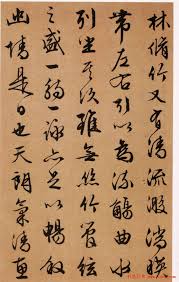 林脩竹又有清流激湍暎
帶左右引以為流觴曲水
列坐其次雖無絲竹管絃
之盛一觴一詠亦足以暢敘
幽情是日也天朗氣清惠